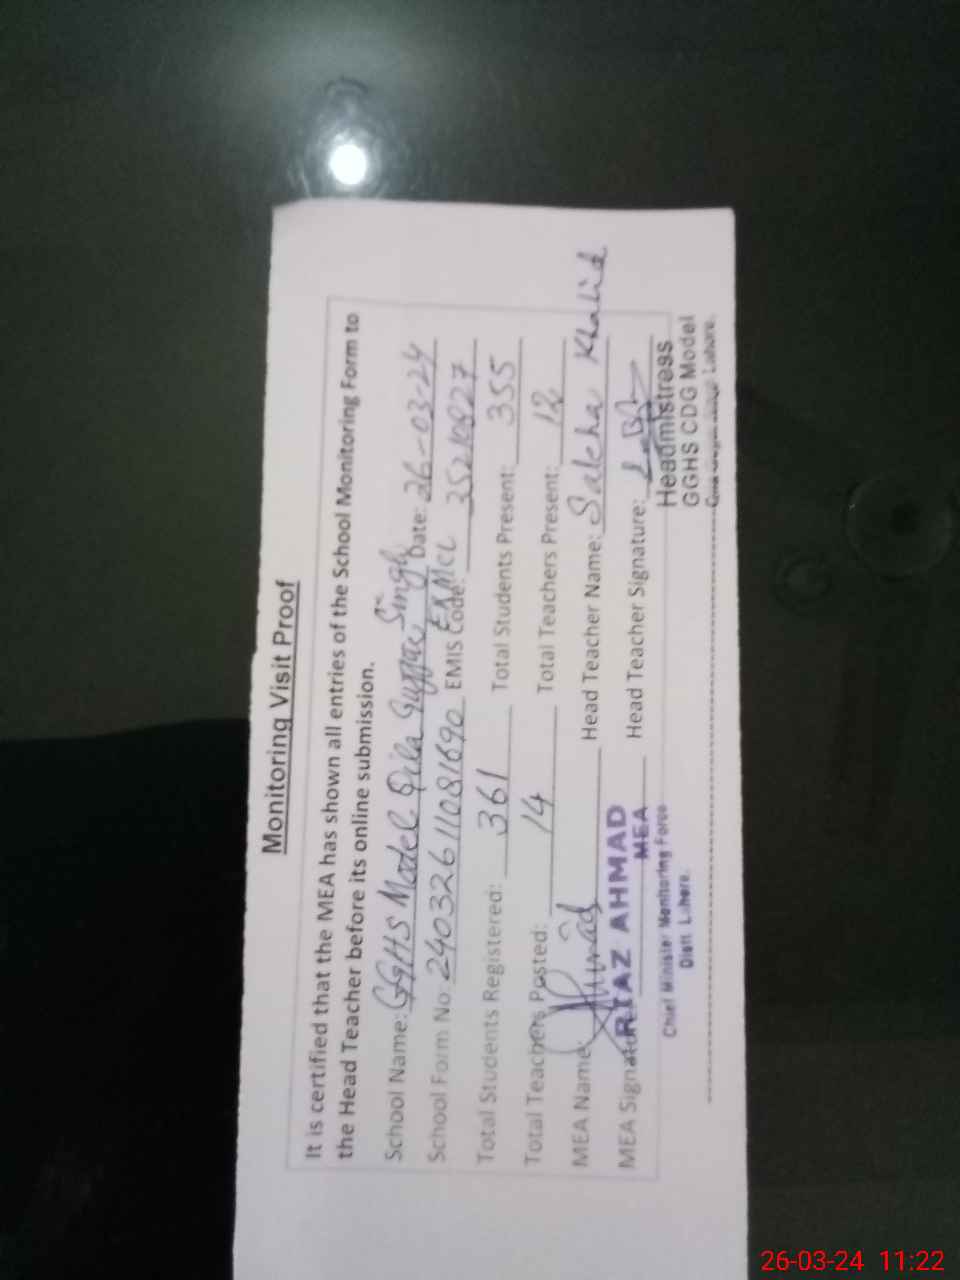 Monitoring Visit Proof
It is certified that the MEA has shown all entries of the School Monitoring Form to
the Head Teacher before its online submission.
School Name: GGHS Model Qila Gujjar Singh Date: 26-03-24
Ex MCL
School Form No: 24032611081690 EMIS Code: 35210927
Total Students Registered: 361 Total Students Present: 355
Total Teachers Posted: 14 Total Teachers Present: 12
MEA Name: Head Teacher Name: Saleha Khalid
MEA Signature: Head Teacher Signature:
RIAZ AHMAD
MEA
Chief Minister Monitoring Force
Distt. Lahore.
Headmistress
GGHS CDG Model
Lahore.
26-03-24 11:22